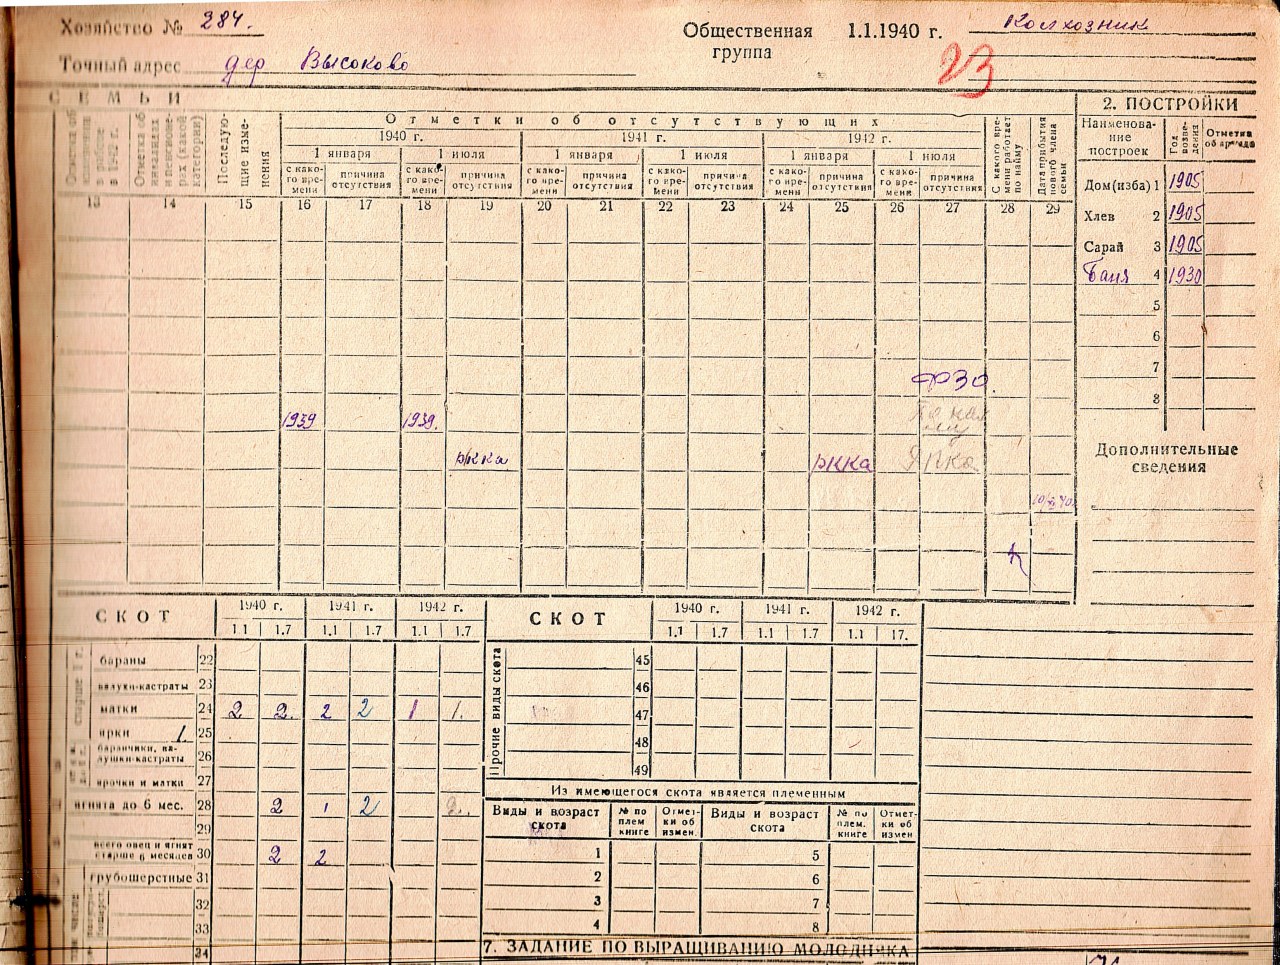 Хозяйство № 284.
Общественная группа 1.1.1940 г. Колхозник
Точный адрес дер Высоково
23
СЕМЬИ
2. ПОСТРОЙКИ
Отметки об отсутствующих
1940 г. 1941 г. 1942 г.
1 января 1 июля 1 января 1 июля 1 января 1 июля
Отметка об инвалидах и пенсионерах (какой категории)
Последующие изменения
с какого времени причина отсутствия с какого времени причина отсутствия с какого времени причина отсутствия с какого времени причина отсутствия с какого времени причина отсутствия с какого времени причина отсутствия
С какого времени работает по найму
Дата прибытия нового члена семьи
Наименование построек Год возведения
13 14 15 16 17 18 19 20 21 22 23 24 25 26 27 28 29
Дом(изба) 1 1905
Хлев 2 1905
Сарай 3 1905
Баня 4 1930
5
6
7
8
ФЗО.
1939 1939.
РККА РККА
Дополнительные сведения
СКОТ 1940 г. 1941 г. 1942 г.
1.1 1.7 1.1 1.7 1.1 1.7
бараны 22
валухи-кастраты 23
матки 24 2 2. 2 2 1 1.
ярки 1. 25
баранчики, валушки-кастраты 26
ярочки и матки 27
ягнята до 6 мес. 28 2 1 2 2.
29
всего овец и ягнят старше 6 месяцев 30 2 2
грубошерстные 31
32
33
34
СКОТ 1940 г. 1941 г. 1942 г.
1.1 1.7 1.1 1.7 1.1 17.
Прочие виды скота
45
46
47
48
49
Из имеющегося скота является племенным
Виды и возраст скота № по плем книге Отметки об измен. Виды и возраст скота № по плем. книге Отметки об измен
1 5
2 6
3 7
4 8
7. ЗАДАНИЕ ПО ВЫРАЩИВАНИЮ МОЛОДНЯКА